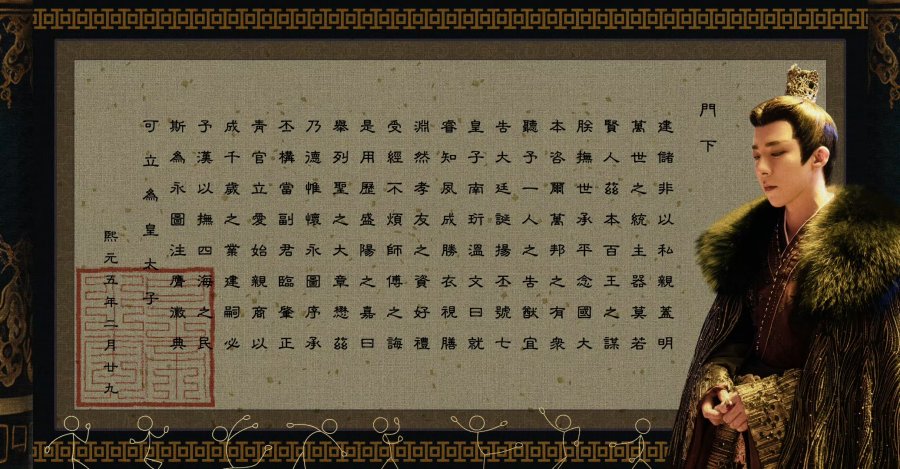 門下
建儲非以私親蓋明
萬世之統主器莫若
賢人茲本百王之謀
朕撫世承平念國大
本咨爾萬邦之有衆
聽予一人之告猷宜
告大廷誕揚丕號七
皇子南珩溫文日就
睿知夙成勝衣視膳
淵然孝友之資好禮
受經不煩師傅之誨
是用歷盛陽之嘉曰
舉列聖之大章懋茲
乃德惟懷永圖序承
丕構當副君臨肇正
青官立愛始親商以
成千歲之業建嗣必
予漢以撫四海之民
斯為永圖注膺徽典
可立為皇太子
熙元五年二月廿九